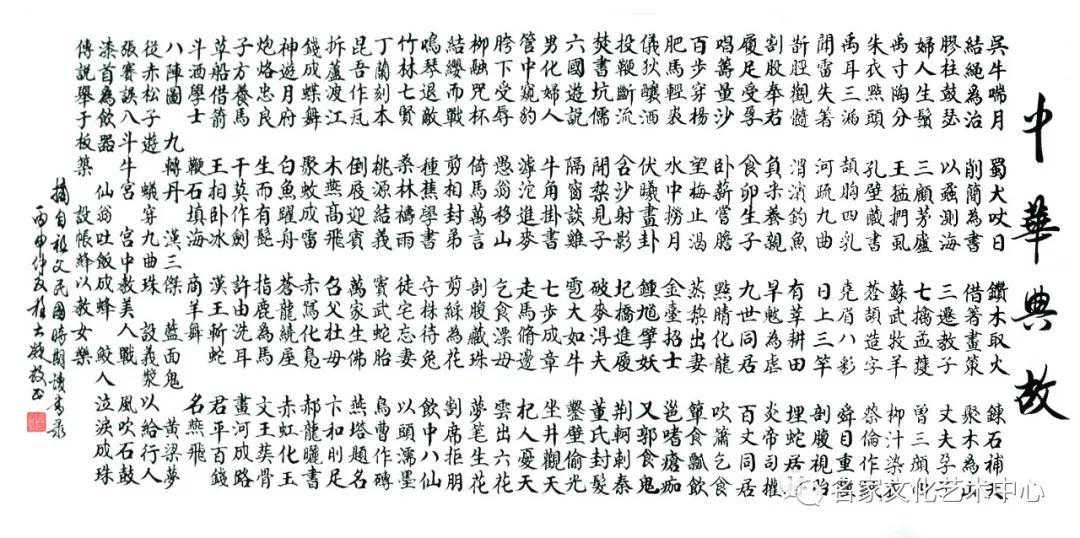 中華典故
吳牛喘月 蜀犬吠日 鑽木取火 鍊石補天
結繩為治 削簡為書 借箸畫策 聚木為山
膠柱鼓瑟 以蠡測海 三遷教子 丈夫孕子
婦人生鬚 三顧茅廬 七擒孟獲 曾三顏四
禹寸陶分 王猛捫虱 蘇武牧羊 柳汁染衣
朱衣點頭 孔壁藏書 蒼頡造字 蔡倫作紙
禹耳三漏 頡胸四乳 堯眉八彩 舜目重瞳
聞雷失箸 河疏九曲 日上三竿 剖腹視胎
斮脛觀髓 渭濱釣魚 有莘耕田 埋蛇居
割股奉君 負米養親 早魃為虐 炎帝司權
履足受孕 食卵生子 九世同居 百丈同居
唱籌量沙 臥薪嘗膽 點睛化龍 吹簫乞食
百步穿楊 望梅止渴 蒸藜出妻 簞食瓢飲
肥馬輕裘 水中撈月 金臺招士 邕嗜瘡痂
儀狄釀酒 伏曦畫卦 鍾馗擘妖 又郭食鬼
投鞭斷流 含沙射影 圯橋進履 荊軻刺秦
焚書坑儒 開棃見子 破麥得夫 董氏封髮
六國遊說 隔窗談雞 雹大如牛 鑿壁偷光
男化婦人 牛角掛書 七步成章 坐井觀天
管中窺豹 滹沱進麥 走馬脩邊 杞人憂天
胯下受辱 愚翁移山 乞食漂母 雲出六花
柳融咒杯 倚馬萬言 剖腹藏珠 夢筆生花
結纓而戰 剪相封弟 剪綵為花 割席拒朋
嗚琴退敵 種蕉學書 守株待兔 飲中八仙
竹林七賢 桑林禱雨 徒宅忘妻 以頭濡墨
丁蘭刻本 桃源結義 竇武蛇胎 烏曹作磚
昆吾作瓦 倒屣迎賓 萬家生佛 燕塔題名
拆蘆渡江 木燕高飛 召父杜母 卞和刖足
錢成蝶舞 聚蚊成雷 赤舄化鳧 郝龍曬書
神遊月府 白魚躍舟 蒼龍繞屋 赤虹化玉
炮烙忠良 生而有髭 指鹿為馬 文王葬骨
子方養馬 干莫作劍 許由洗耳 畫河成路
草船借箭 王相臥冰 漢王斬蛇 君平百錢
斗酒學士 鞭石填海 商羊舞 名燕飛
八陣圖 九轉丹 漢三傑 藍面鬼 黃梁夢
從赤松子遊 蟻穿九曲珠 設義漿以給行人
張騫誤八斗牛宮 宮中教美人戰 風吹石鼓
漆首為飲器 仙翁吐飯成蜂 鮫人泣淚成珠
傳説舉于板築 設帳絳以教女樂
摘自祖父民國時期讀書錄
丙申仲夏程大
名家文化艺术中心